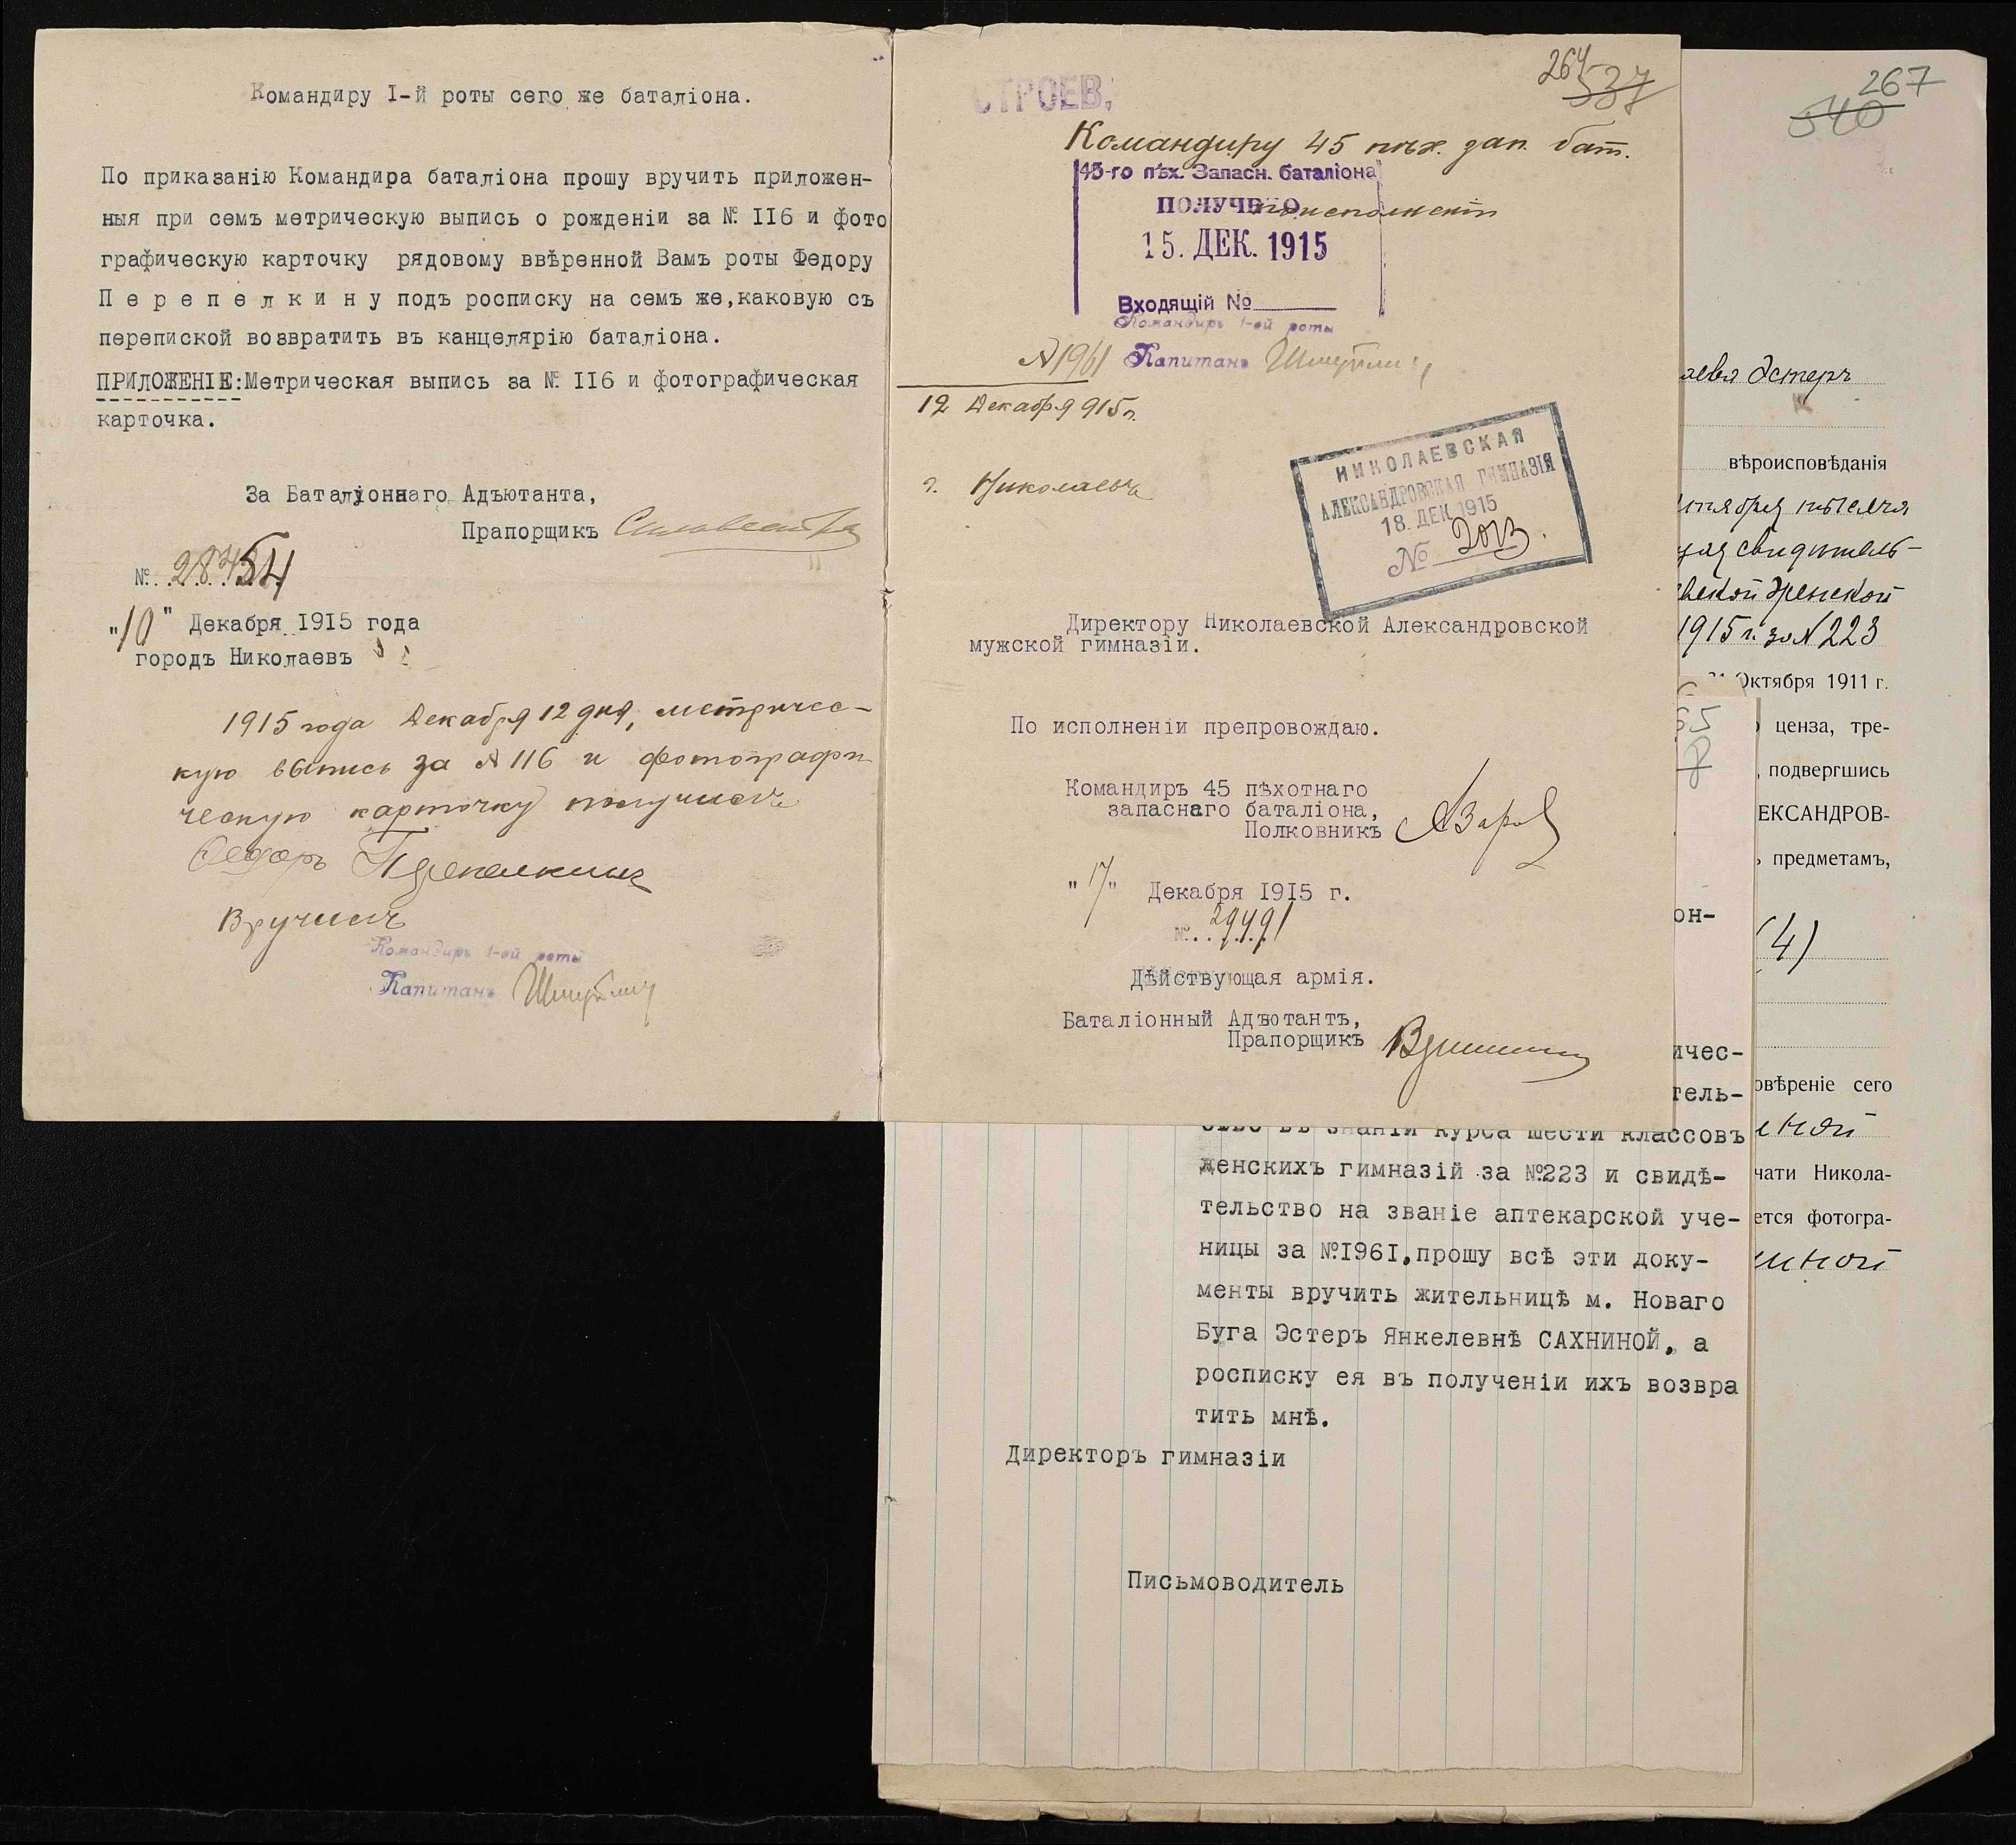 Командиру I-й роты сего же баталіона.
По приказанію Командира баталіона прошу вручить приложен-
ныя при семъ метрическую выпись о рожденіи за № II6 и фото
графическую карточку рядовому ввѣренной Вамъ роты Федору
П е р е п е л к и н у подъ росписку на семъ же,каковую съ
перепиской возвратить въ канцелярію баталіона.
ПРИЛОЖЕНІЕ:Метрическая выпись за № II6 и фотографическая
карточка.
За Баталіоннаго Адъютанта,
Прапорщикъ
№
"10" Декабря 1915 года
городъ Николаевъ
1915 года Декабря 12 дня, метричес-
кую выпись за № 116 и фотографи
ческую карточку получилъ
Федоръ Перепелкинъ
Вручилъ
Командиръ 1-ой роты
Капитанъ
264
537
СТРОЕВ.
Командиру 45 пѣх. зап. бат.
45-го пѣх. Запасн. баталіона
ПОЛУЧЕНО
по исполненіи
15. ДЕК. 1915
Входящій №
Командиръ 1-ой роты
№ 1961 Капитанъ
12 Декабря 915 г.
г. Николаевъ
НИКОЛАЕВСКАЯ
АЛЕКСАНДРОВСКАЯ ГИМНАЗІЯ
18. ДЕК 1915
№ 2013.
Директору Николаевской Александровской
мужской гимназіи.
По исполненіи препровождаю.
Командиръ 45 пѣхотнаго
запаснаго баталіона,
Полковникъ
"17" Декабря 1915 г.
№. 29491
Дѣйствующая армія.
Баталіонный Адъютантъ,
Прапорщикъ
он-
ичес-
тель-
ство въ знаніи курса шести классовъ
женскихъ гимназій за №223 и свидѣ-
тельство на званіе аптекарской уче-
ницы за №I96I,прошу всѣ эти доку-
менты вручить жительницѣ м. Новаго
Буга Эстеръ Янкелевнѣ САХНИНОЙ, а
росписку ея въ полученіи ихъ возвра
тить мнѣ.
Директоръ гимназіи
Письмоводитель
267
540
аевна Эстеръ
вѣроисповѣданія
1915 г. за № 223
Октября 1911 г.
ценза, тре-
, подвергшись
ЕКСАНДРОВ-
предметамъ,
(4)
овѣреніе сего
иной
чати Никола-
ется фотогра-
иной